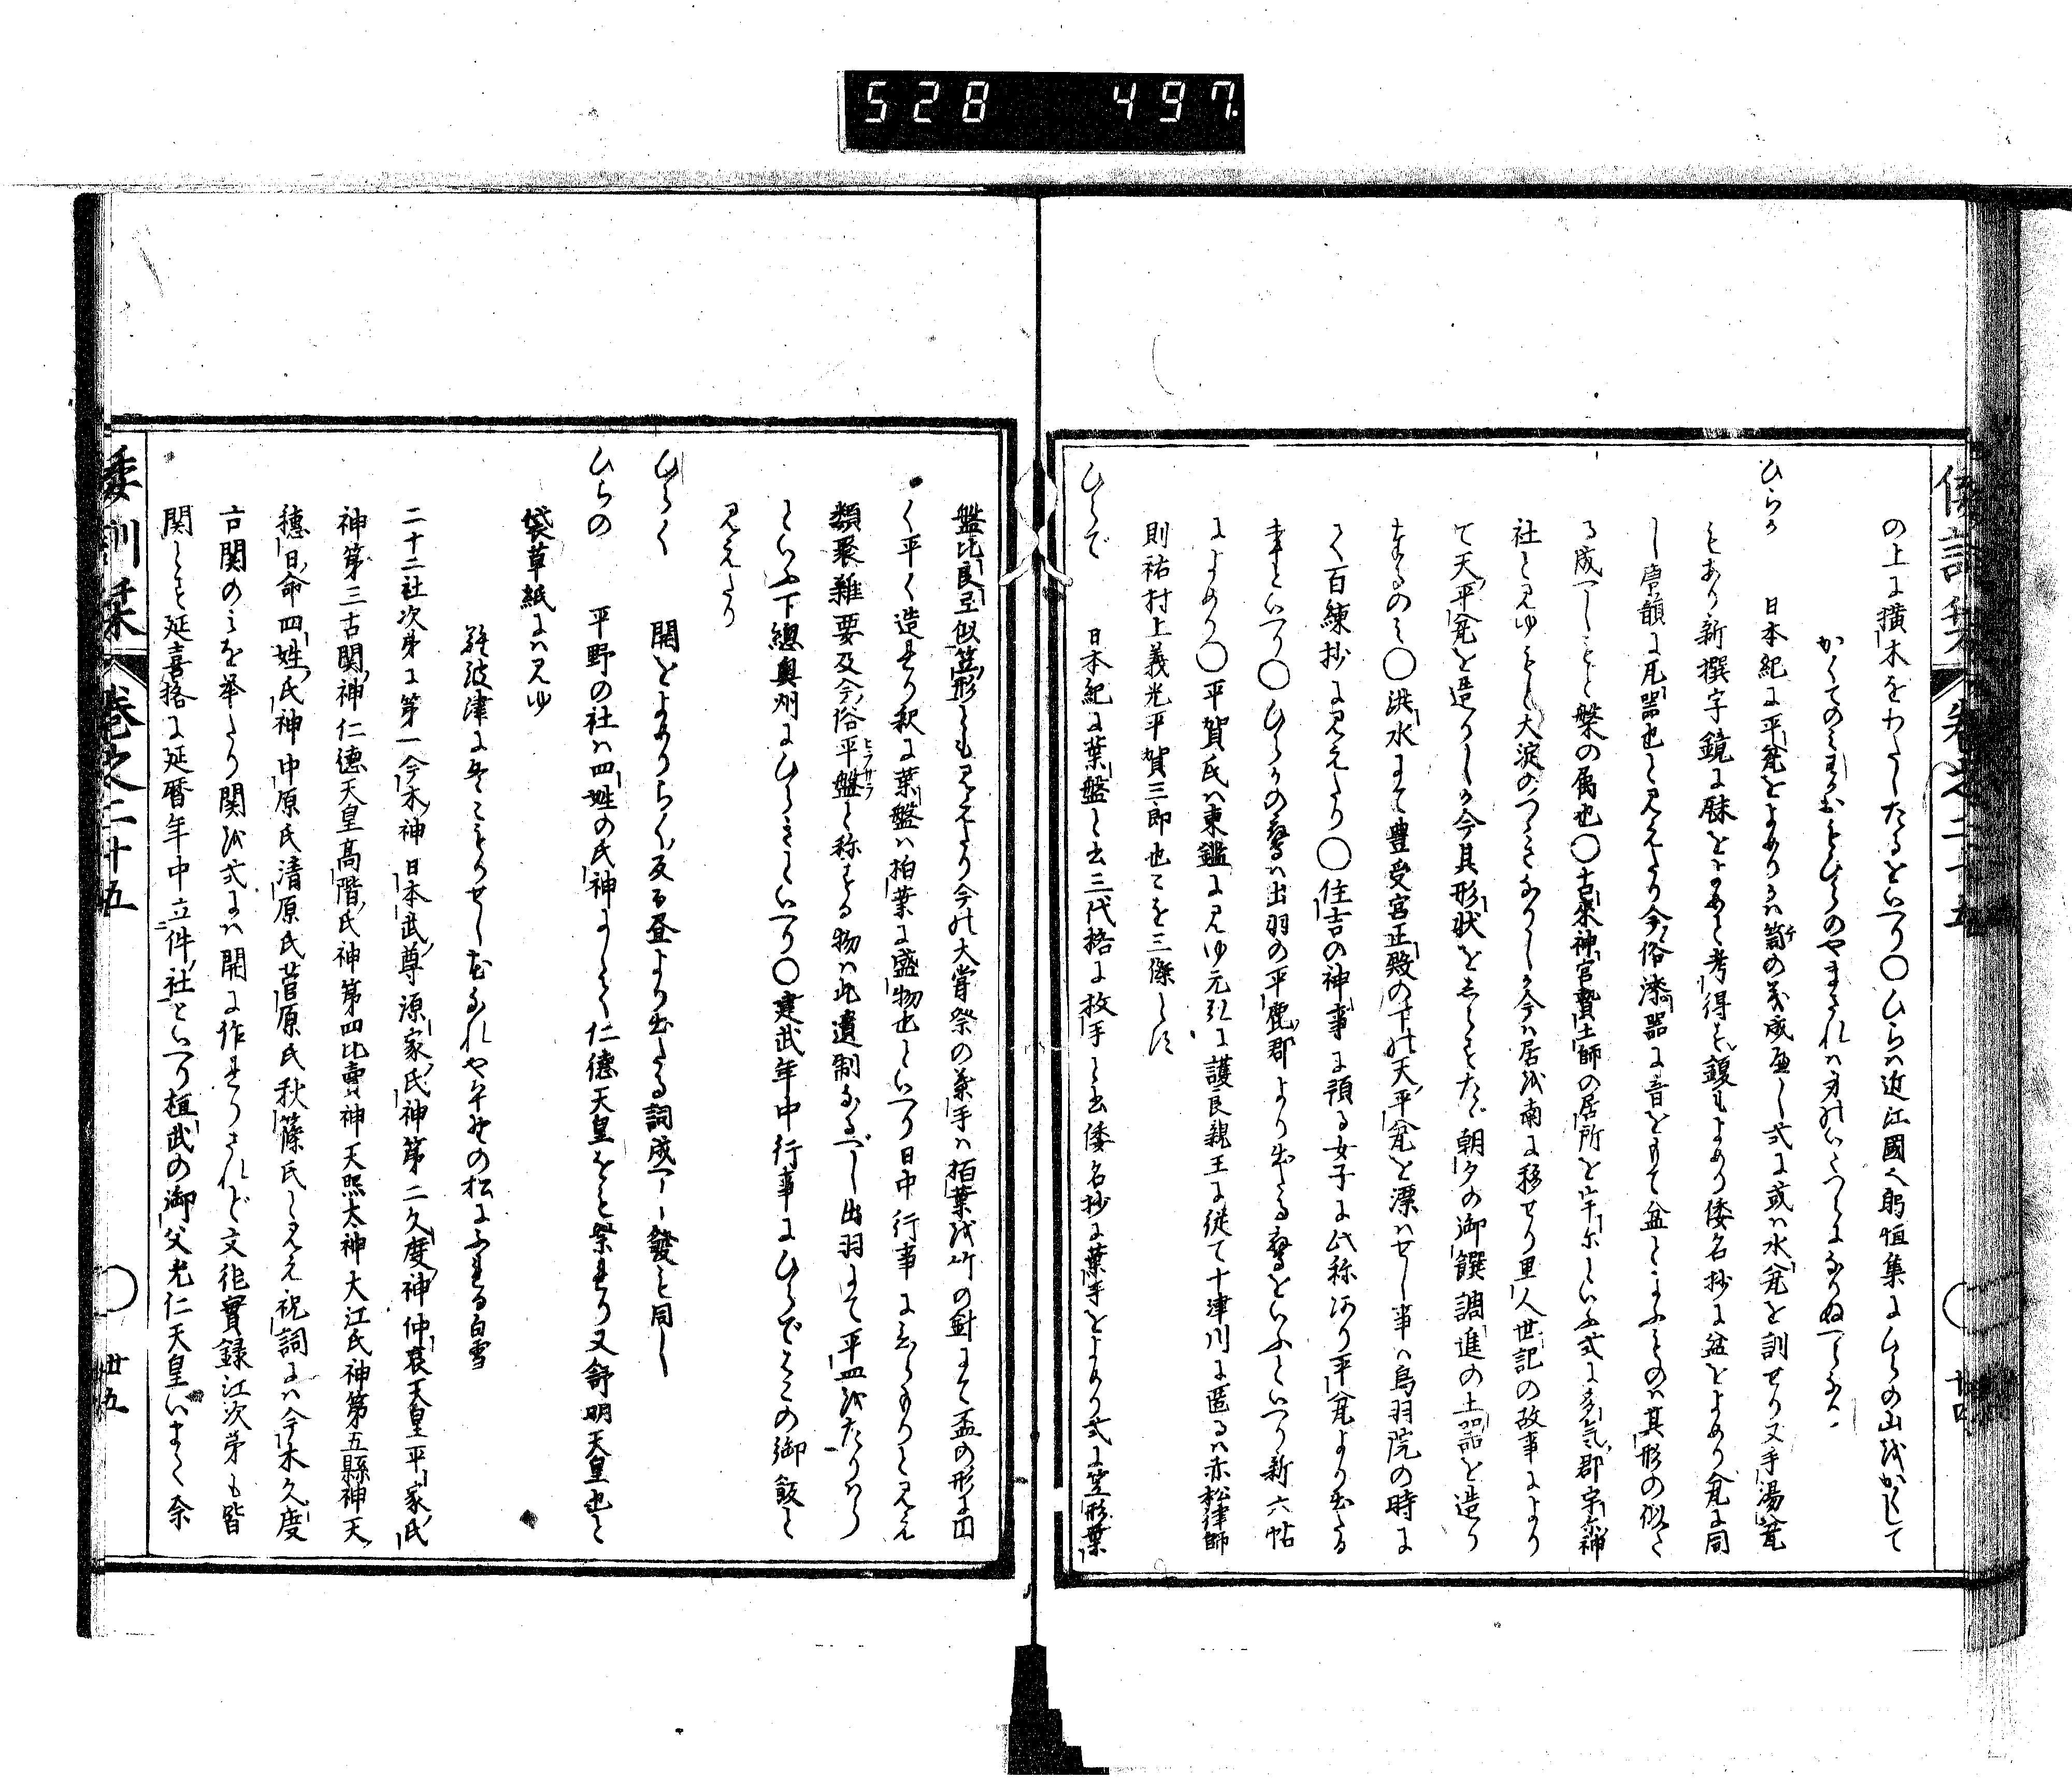 528 497
倭訓栞 巻之二十五 ○ 廿四
の上に横木をわたしたるをいへり〇ひらは近江國也躬恒集にひらの山をかくして
かくてのみわかおもひひらのやまされは身はいたつらになりぬへらなり
ひらか 日本紀に平瓮をよめりかは笥の義成へし式に或は水瓮を訓せり又手湯瓮
もあり新撰字鏡に𦜝をよめと考得す鍑もよめり倭名抄に盆をよめり瓮に同
し唐韻に瓦器也と見えたり今俗漆器に音をもて盆といふものは其形の似た
る成へしもと盤の属也〇古来神宮贄土師の居所を宇尓といふ式に多気郡宇尓神
社と見ゆもと大淀のつゝきなりしか今は居を南に移せり里人世記の故事により
て天平瓮を造りしか今其形状をしらすたゝ朝夕の御饌調進の土器を造り
なるのみ〇洪水にて豊受宮正殿の下の天平瓮を漂はせし事は鳥羽院の時に
て百練抄に見えたり〇住吉の神事に預る女子に此称あり平瓮より出たる
事といへり〇ひらかの鷹は出羽の平鹿郡より出たる鷹をいふといへり新六帖
によめり〇平賀氏は東鑑に見ゆ元弘に護良親王に従て十津川に匿るは赤松律師
則祐村上義光平賀三郎也こを三傑とす
ひらで 日本紀に葉盤と云三代格に枚手と云倭名抄に葉手をよめり式に笠形葉
盤比良弖似笠形とも見えたり今の大嘗祭の葉手は栢葉を竹の針にて盃の形に凹
く平く造るり釈に葉盤は栢葉に盛物也といへり日中行事にひらもりと見え
類聚雑要及今俗平盤と称する物は此遺制なるべし出羽にて平皿をたりはら
といふ下總奥州にひらきといへり〇建武年中行事にひらでみこの御飯と
見えたり
ひらく 開をよめりらく反る昼より出たる詞成へし發も同し
ひらの 平野の社は四姓の氏神にして仁徳天皇をを祭るり又舒明天皇也と
袋草紙には見ゆ
難波津に冬こもりせし花なれや平野の松にふれる白雪
二十二社次第に第一今木神日本武尊源家氏神第二久度神仲哀天皇平家氏
神第三古関神仁徳天皇高階氏神第四比賣神天照太神大江氏神第五縣神天
穂日命四姓氏神中原氏清原氏菅原氏秋篠氏と見え祝詞には今木久度
古関のみを挙たり関を式には開に作るりされど文徳實録江次第も皆
関とす延喜格に延暦年中立件社といへり桓武の御父光仁天皇いまた奈
倭訓栞 巻之二十五 ○ 廿五